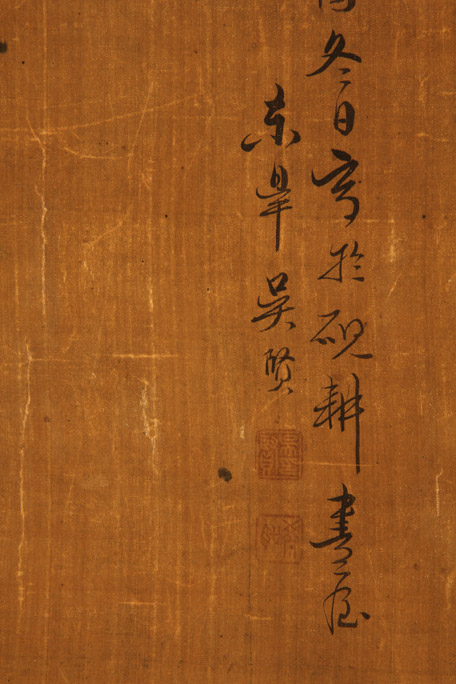 冬日寫於硯耕書屋
東皐吳賢